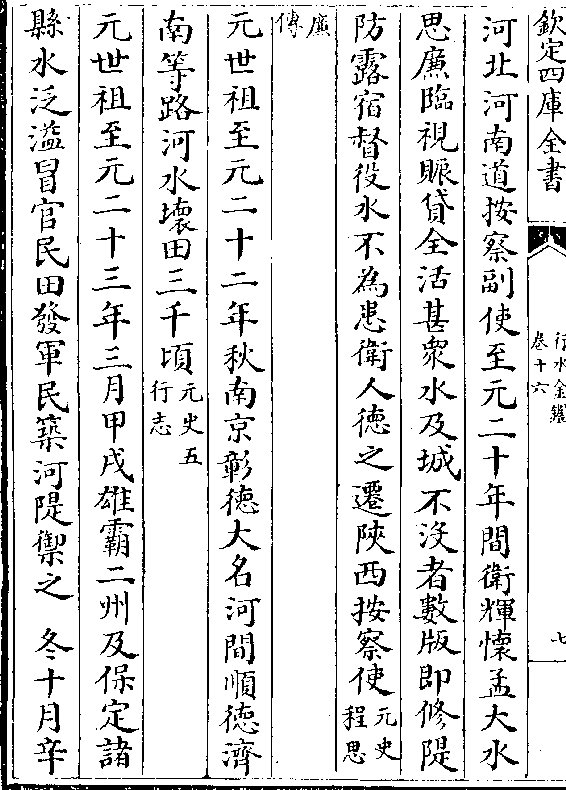 欽定四庫全書
行水金鑑
卷十六
七
河北河南道按察副使至元二十年間衛輝懷孟大水
思廉臨視賑貸全活甚衆水及城不沒者數版即修隄
防露宿督役水不為患衛人德之遷陜西按察使元史程思
廉傳
元世祖至元二十二年秋南京彰德大名河間順德濟
南等路河水壞田三千頃元史五行志
元世祖至元二十三年三月甲戌雄霸二州及保定諸
縣水泛溢冒官民田發軍民築河隄禦之　冬十月辛